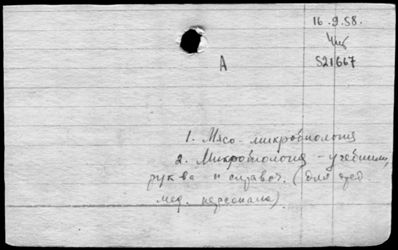 16.9.58.
521667
А
1. Мясо - микробиология
2. Микробиология - учебники,
рук-ва и справоч. (для сред
мед. персонала)